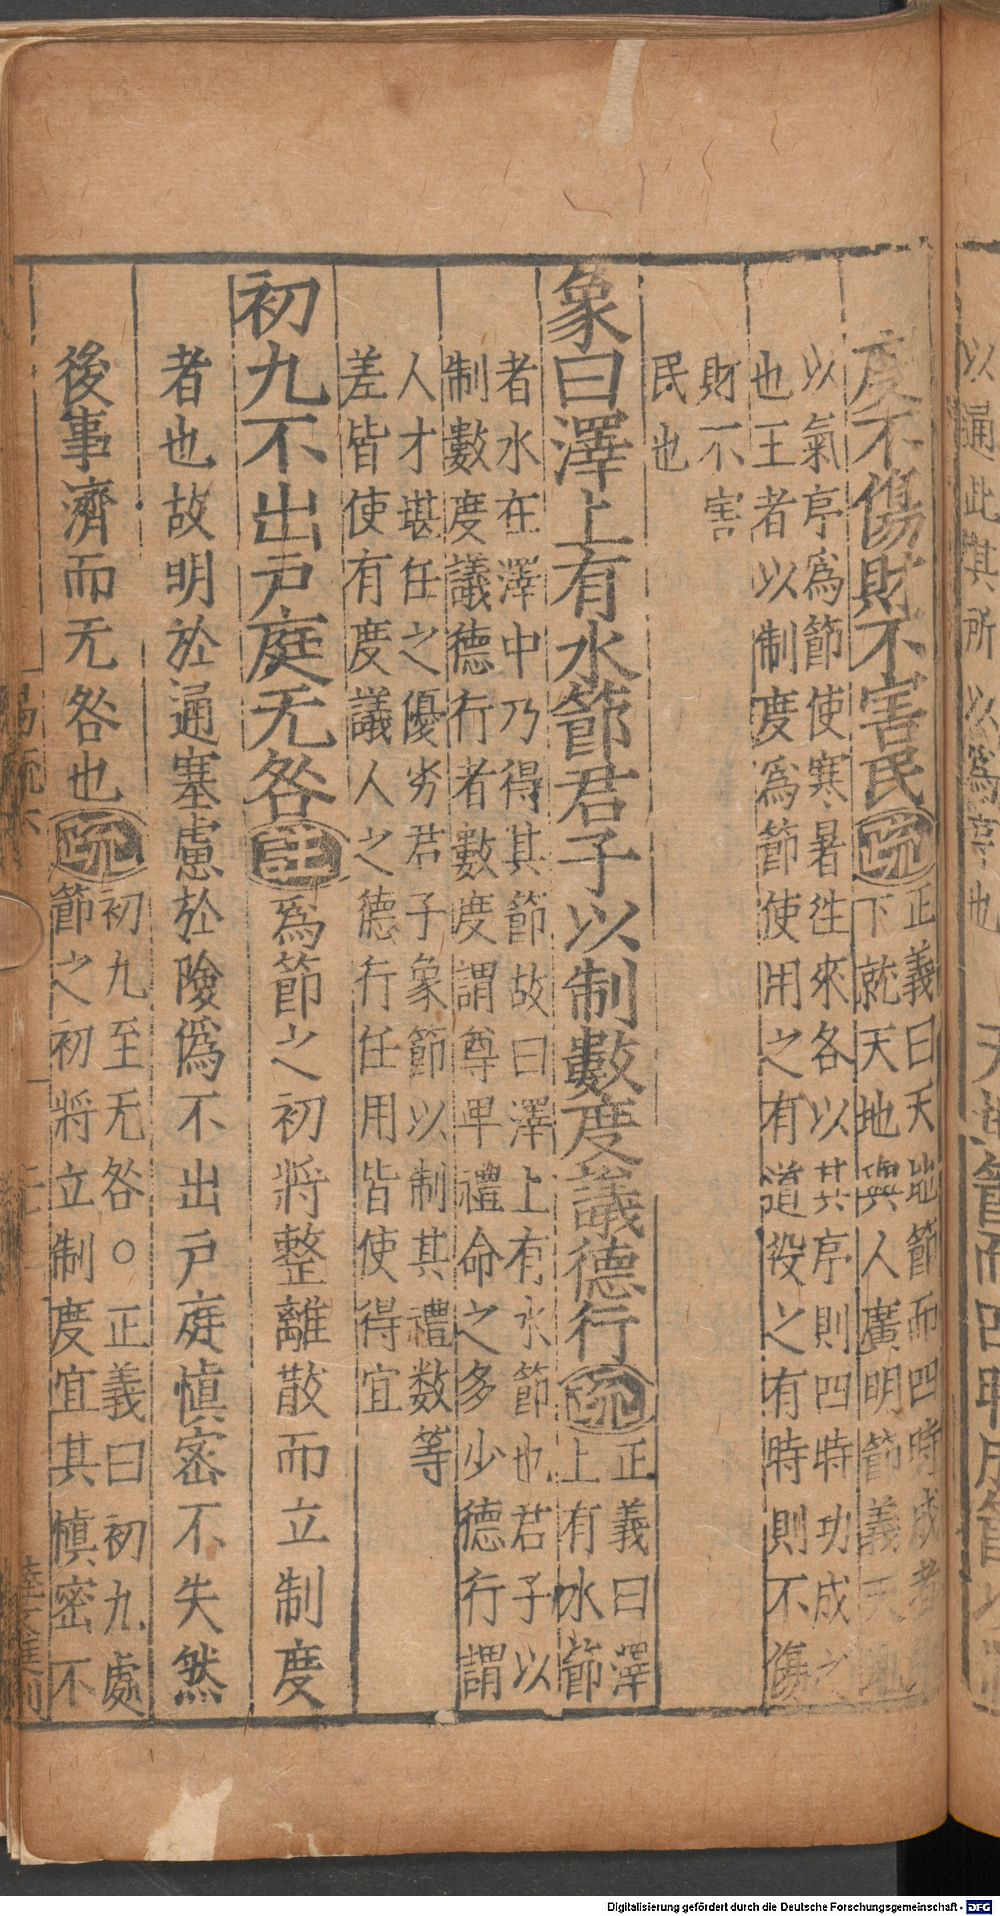 度不傷財不害民疏正義曰天地節而四時成者
下就天地與人廣明節義天地
以氣序爲節使寒暑往來各以其序則四時功成之
也王者以制度爲節使用之有道役之有時則不傷
財不害
民也
象曰澤上有水節君子以制數度議德行疏正義曰澤
上有水節
者水在澤中乃得其節故曰澤上有水節也君子以
制數度議德行者數度謂尊卑禮命之多少德行謂
人才堪任之優劣君子象節以制其禮数等
差皆使有度議人之德行任用皆使得宜
初九不出戶庭无咎註爲節之初將整離散而立制度
者也故明於通塞慮於險僞不出戶庭愼密不失然
後事濟而无咎也疏初九至无咎○正義曰初九處
節之初將立制度宜其愼密不
易疏六
以通此其所以爲亨也
天地節而四時成節以制
Digitalisierung gefördert durch die Deutsche Forschungsgemeinschaft - DFG